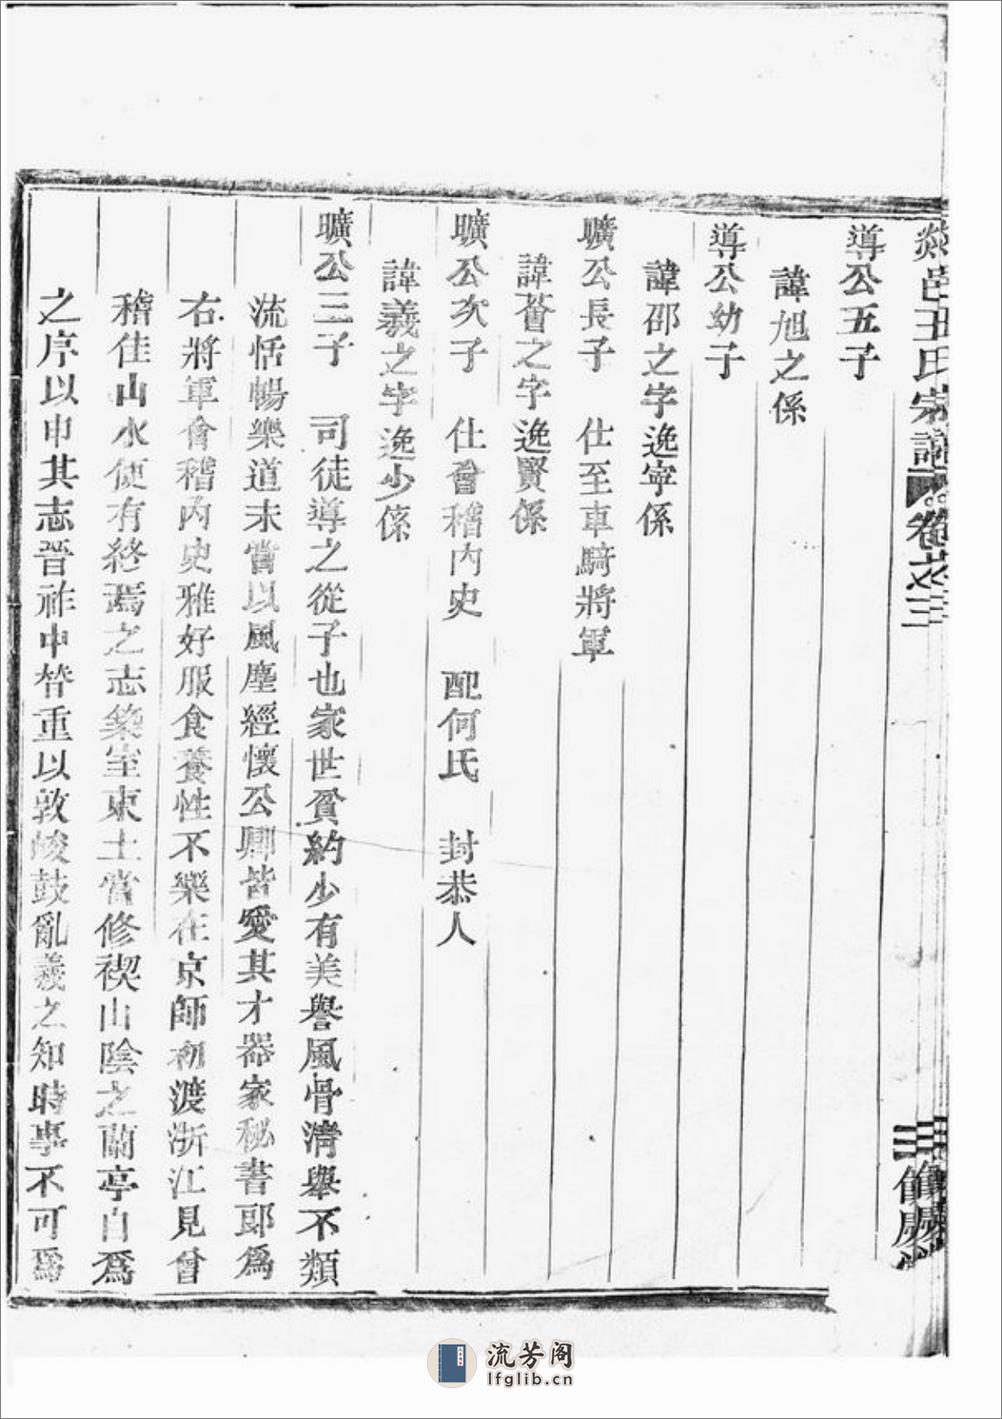 炎邑王氏宗譜 卷之三
導公五子
諱旭之係
導公幼子
諱邵之字逸寧係
曠公長子 仕至車騎將軍
諱耆之字逸賢係
曠公次子 仕會稽內史 配何氏 封恭人
諱羲之字逸少係
曠公三子 司徒導之從子也家世貧約少有美譽風骨清舉不類
流恬暢樂道未嘗以風塵經懷公卿皆愛其才器家秘書郎為
右將軍會稽內史雅好服食養性不樂在京師初渡浙江見會
稽佳山水便有終焉之志築室東土嘗修禊山陰之蘭亭自為
之序以申其志晉祚中替重以敦峻鼓亂羲之知時事不可為
流芳阁
lfglib.cn